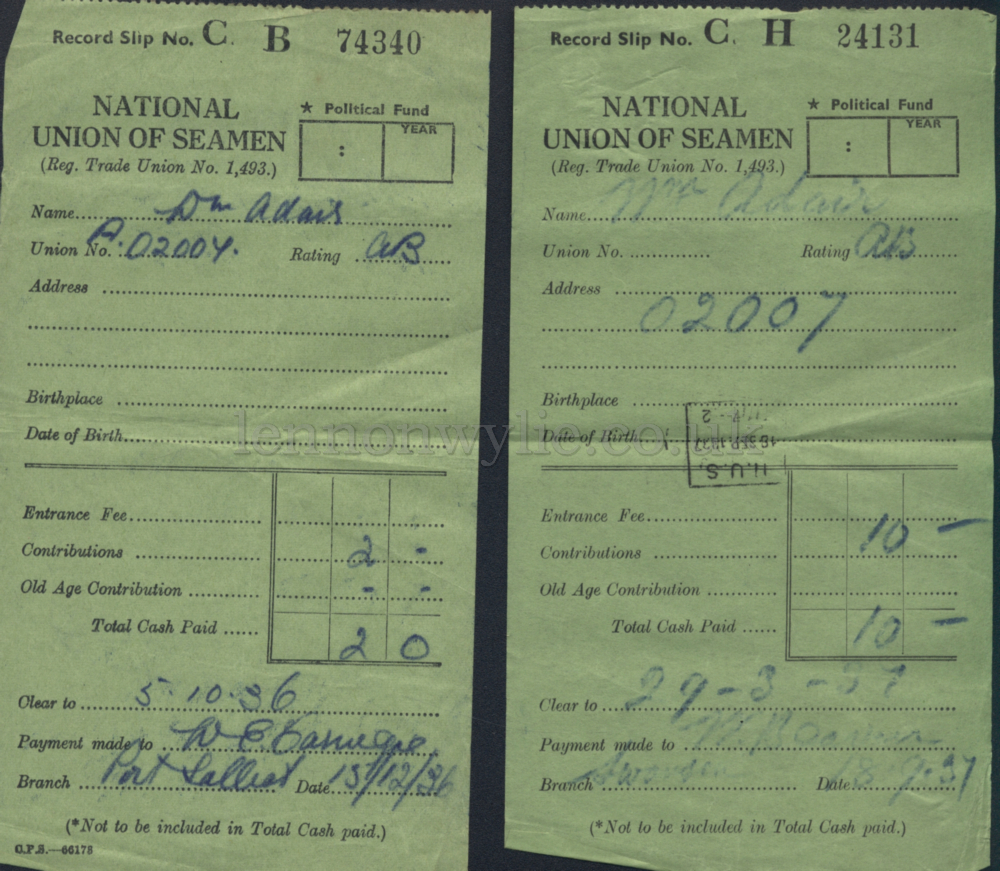 Record Slip No. C. B 74340
NATIONAL
UNION OF SEAMEN
(Reg. Trade Union No. 1,493.)
★ Political Fund
YEAR
:
Name Wm Adair
Union No. A.02007. Rating AB
Address
Birthplace
Date of Birth
Entrance Fee
Contributions 2 -
Old Age Contribution - -
Total Cash Paid 2 0
Clear to 5.10.36
Payment made to W E Carnegie
Branch Port Date 15/12/36
(*Not to be included in Total Cash paid.)
C.P.S.—66178
Record Slip No. C. H 24131
NATIONAL
UNION OF SEAMEN
(Reg. Trade Union No. 1,493.)
★ Political Fund
YEAR
:
Name Wm Adair
Union No. Rating AB
Address
02007
Birthplace
Date of Birth
N.U.S.
Entrance Fee
Contributions 10 -
Old Age Contribution
Total Cash Paid 10 -
Clear to 29-3-37
Payment made to
Branch Swansea Date 18-9-37
(*Not to be included in Total Cash paid.)
lennonwylie.co.uk